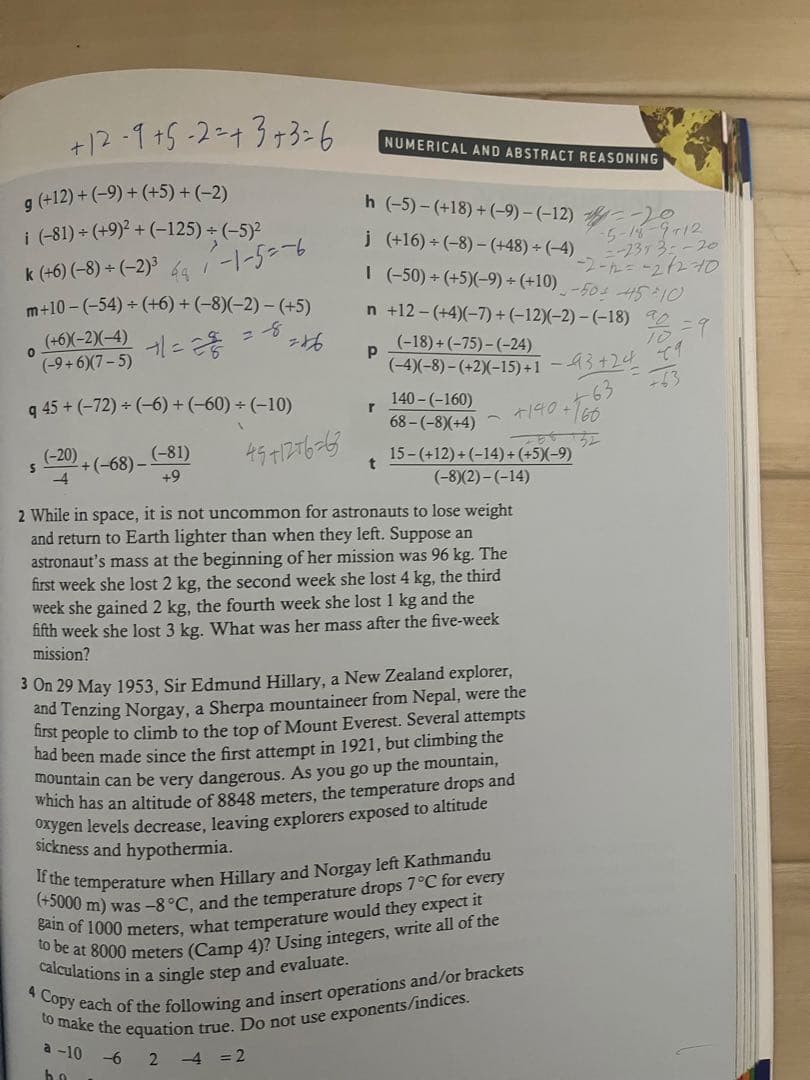 +12 -9 +5 -2 = +3 +3 = 6
NUMERICAL AND ABSTRACT REASONING
g (+12) + (−9) + (+5) + (−2)
h (−5) − (+18) + (−9) − (−12) = -20
-5-18-9+12
= -23+3 = -20
i (−81) ÷ (+9)² + (−125) ÷ (−5)²
-1-5=-6
j (+16) ÷ (−8) − (+48) ÷ (−4)
-2-12 = -2+12=10
k (+6) (−8) ÷ (−2)³
l (−50) ÷ (+5)(−9) ÷ (+10)
m +10 − (−54) ÷ (+6) + (−8)(−2) − (+5)
n +12 − (+4)(−7) + (−12)(−2) − (−18)
90/10 = 9
o (+6)(−2)(−4)
(−9 + 6)(7 − 5)
= -8
p (−18) + (−75) − (−24)
(−4)(−8) − (+2)(−15) + 1
-93+24
+63
q 45 + (−72) ÷ (−6) + (−60) ÷ (−10)
45+12+6=63
r 140 − (−160)
68 − (−8)(+4)
+140 + 160
s (−20)/−4 + (−68) − (−81)/+9
t 15 − (+12) + (−14) + (+5)(−9)
(−8)(2) − (−14)
2 While in space, it is not uncommon for astronauts to lose weight
and return to Earth lighter than when they left. Suppose an
astronaut's mass at the beginning of her mission was 96 kg. The
first week she lost 2 kg, the second week she lost 4 kg, the third
week she gained 2 kg, the fourth week she lost 1 kg and the
fifth week she lost 3 kg. What was her mass after the five-week
mission?
3 On 29 May 1953, Sir Edmund Hillary, a New Zealand explorer,
and Tenzing Norgay, a Sherpa mountaineer from Nepal, were the
first people to climb to the top of Mount Everest. Several attempts
had been made since the first attempt in 1921, but climbing the
mountain can be very dangerous. As you go up the mountain,
which has an altitude of 8848 meters, the temperature drops and
oxygen levels decrease, leaving explorers exposed to altitude
sickness and hypothermia.
If the temperature when Hillary and Norgay left Kathmandu
(+5000 m) was −8 °C, and the temperature drops 7 °C for every
gain of 1000 meters, what temperature would they expect it
to be at 8000 meters (Camp 4)? Using integers, write all of the
calculations in a single step and evaluate.
4 Copy each of the following and insert operations and/or brackets
to make the equation true. Do not use exponents/indices.
a −10 −6 2 −4 = 2